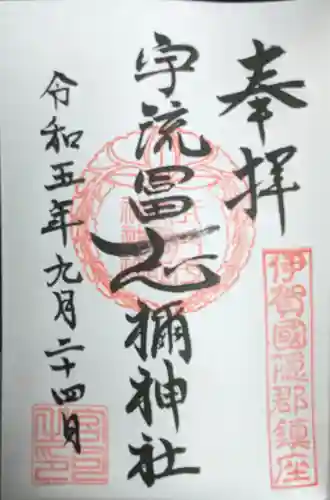 奉拝
伊賀國隠郡鎮座
宇流冨志禰神社
令和五年九月二十四日